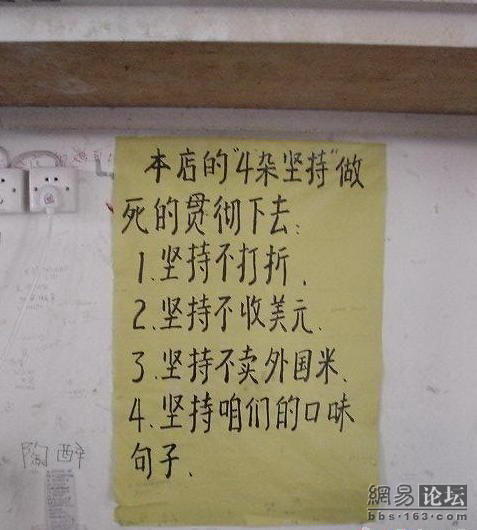 本店的"4杂坚持"做
死的贯彻下去:
1.坚持不打折.
2.坚持不收美元.
3.坚持不卖外国米.
4.坚持咱们的口味
句子.
陶醉
網易 论坛
bbs.163.com